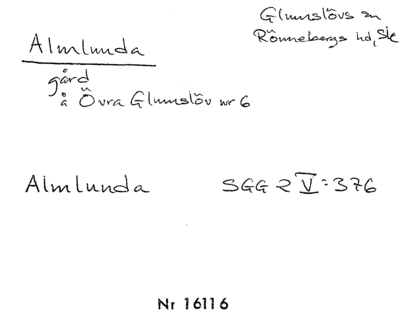 Almlunda
gård
å Övra Glumslöv nr 6
Glumslövs sn
Rönnebergs hd, Sk
Almlunda SGG 2 V:376
Nr 16116